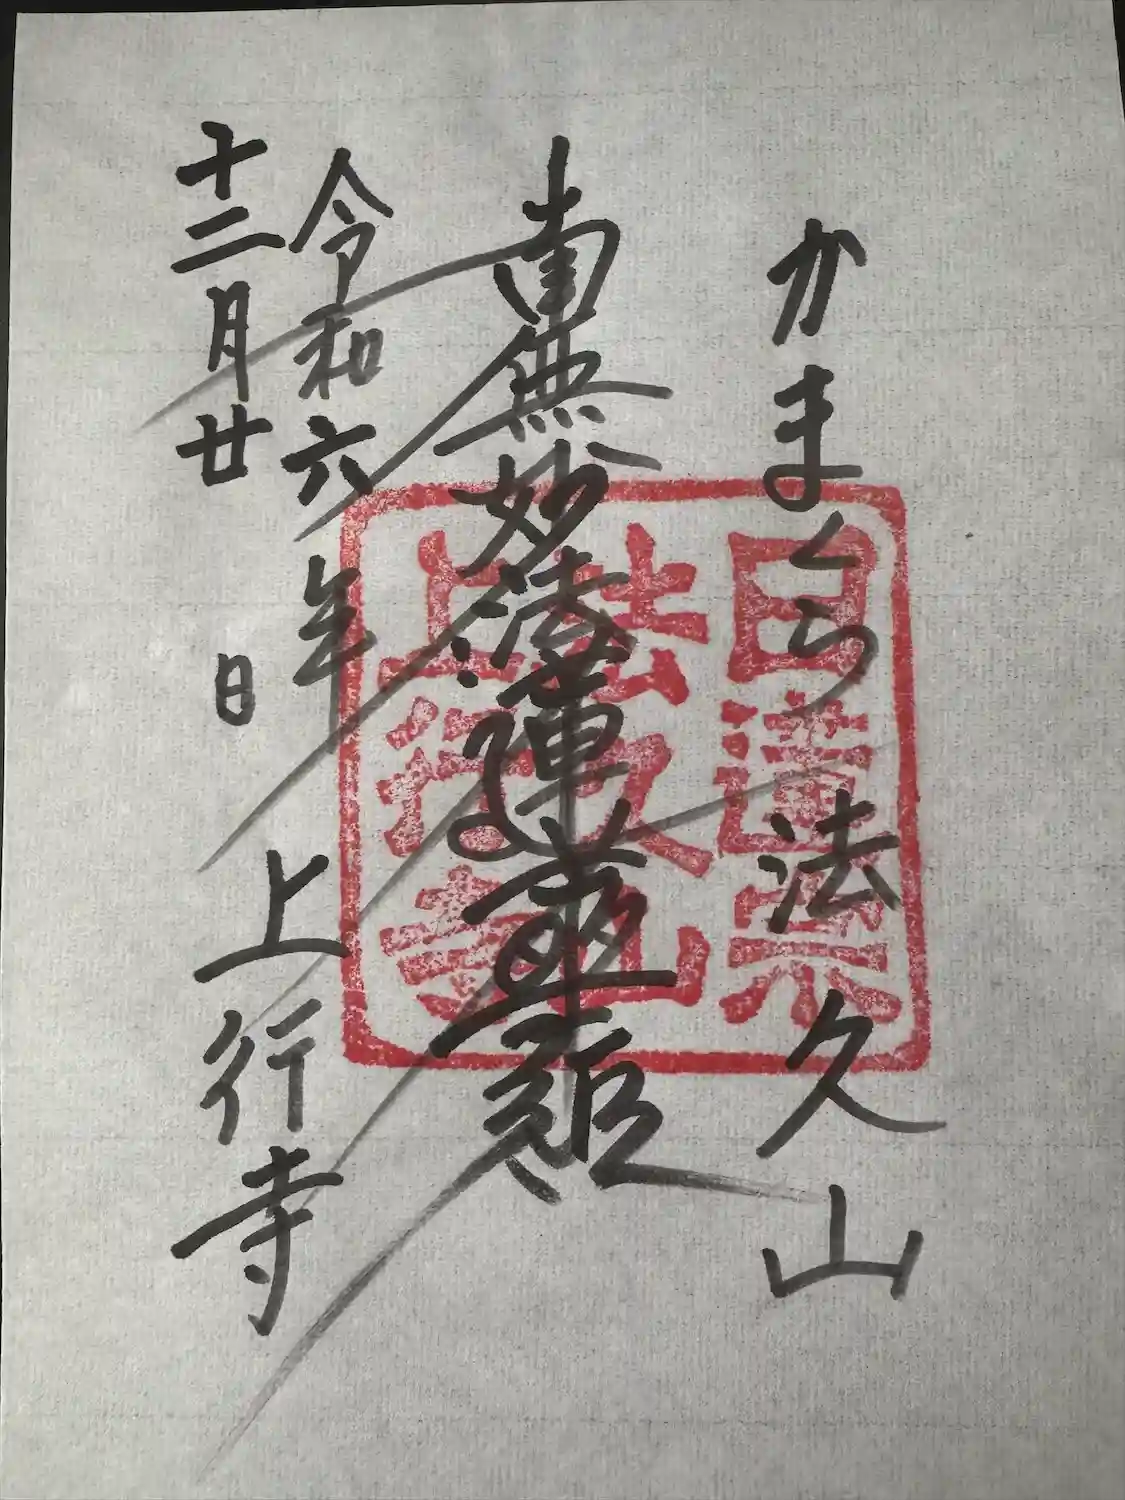 かまくら 法久山
南無妙法蓮華経
令和六年
十二月廿 日
上行寺
日蓮宗
法久山
上行寺